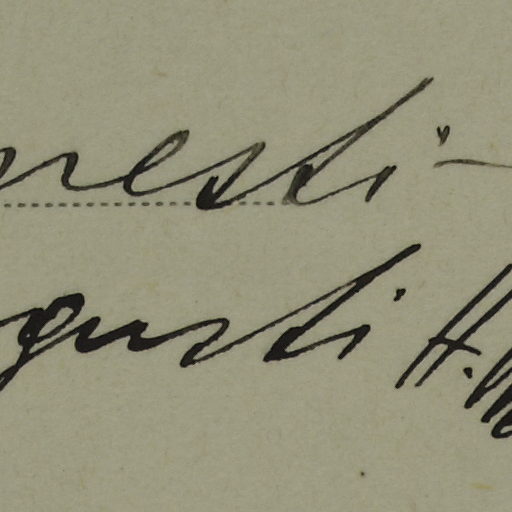 nesti-
gusti H.